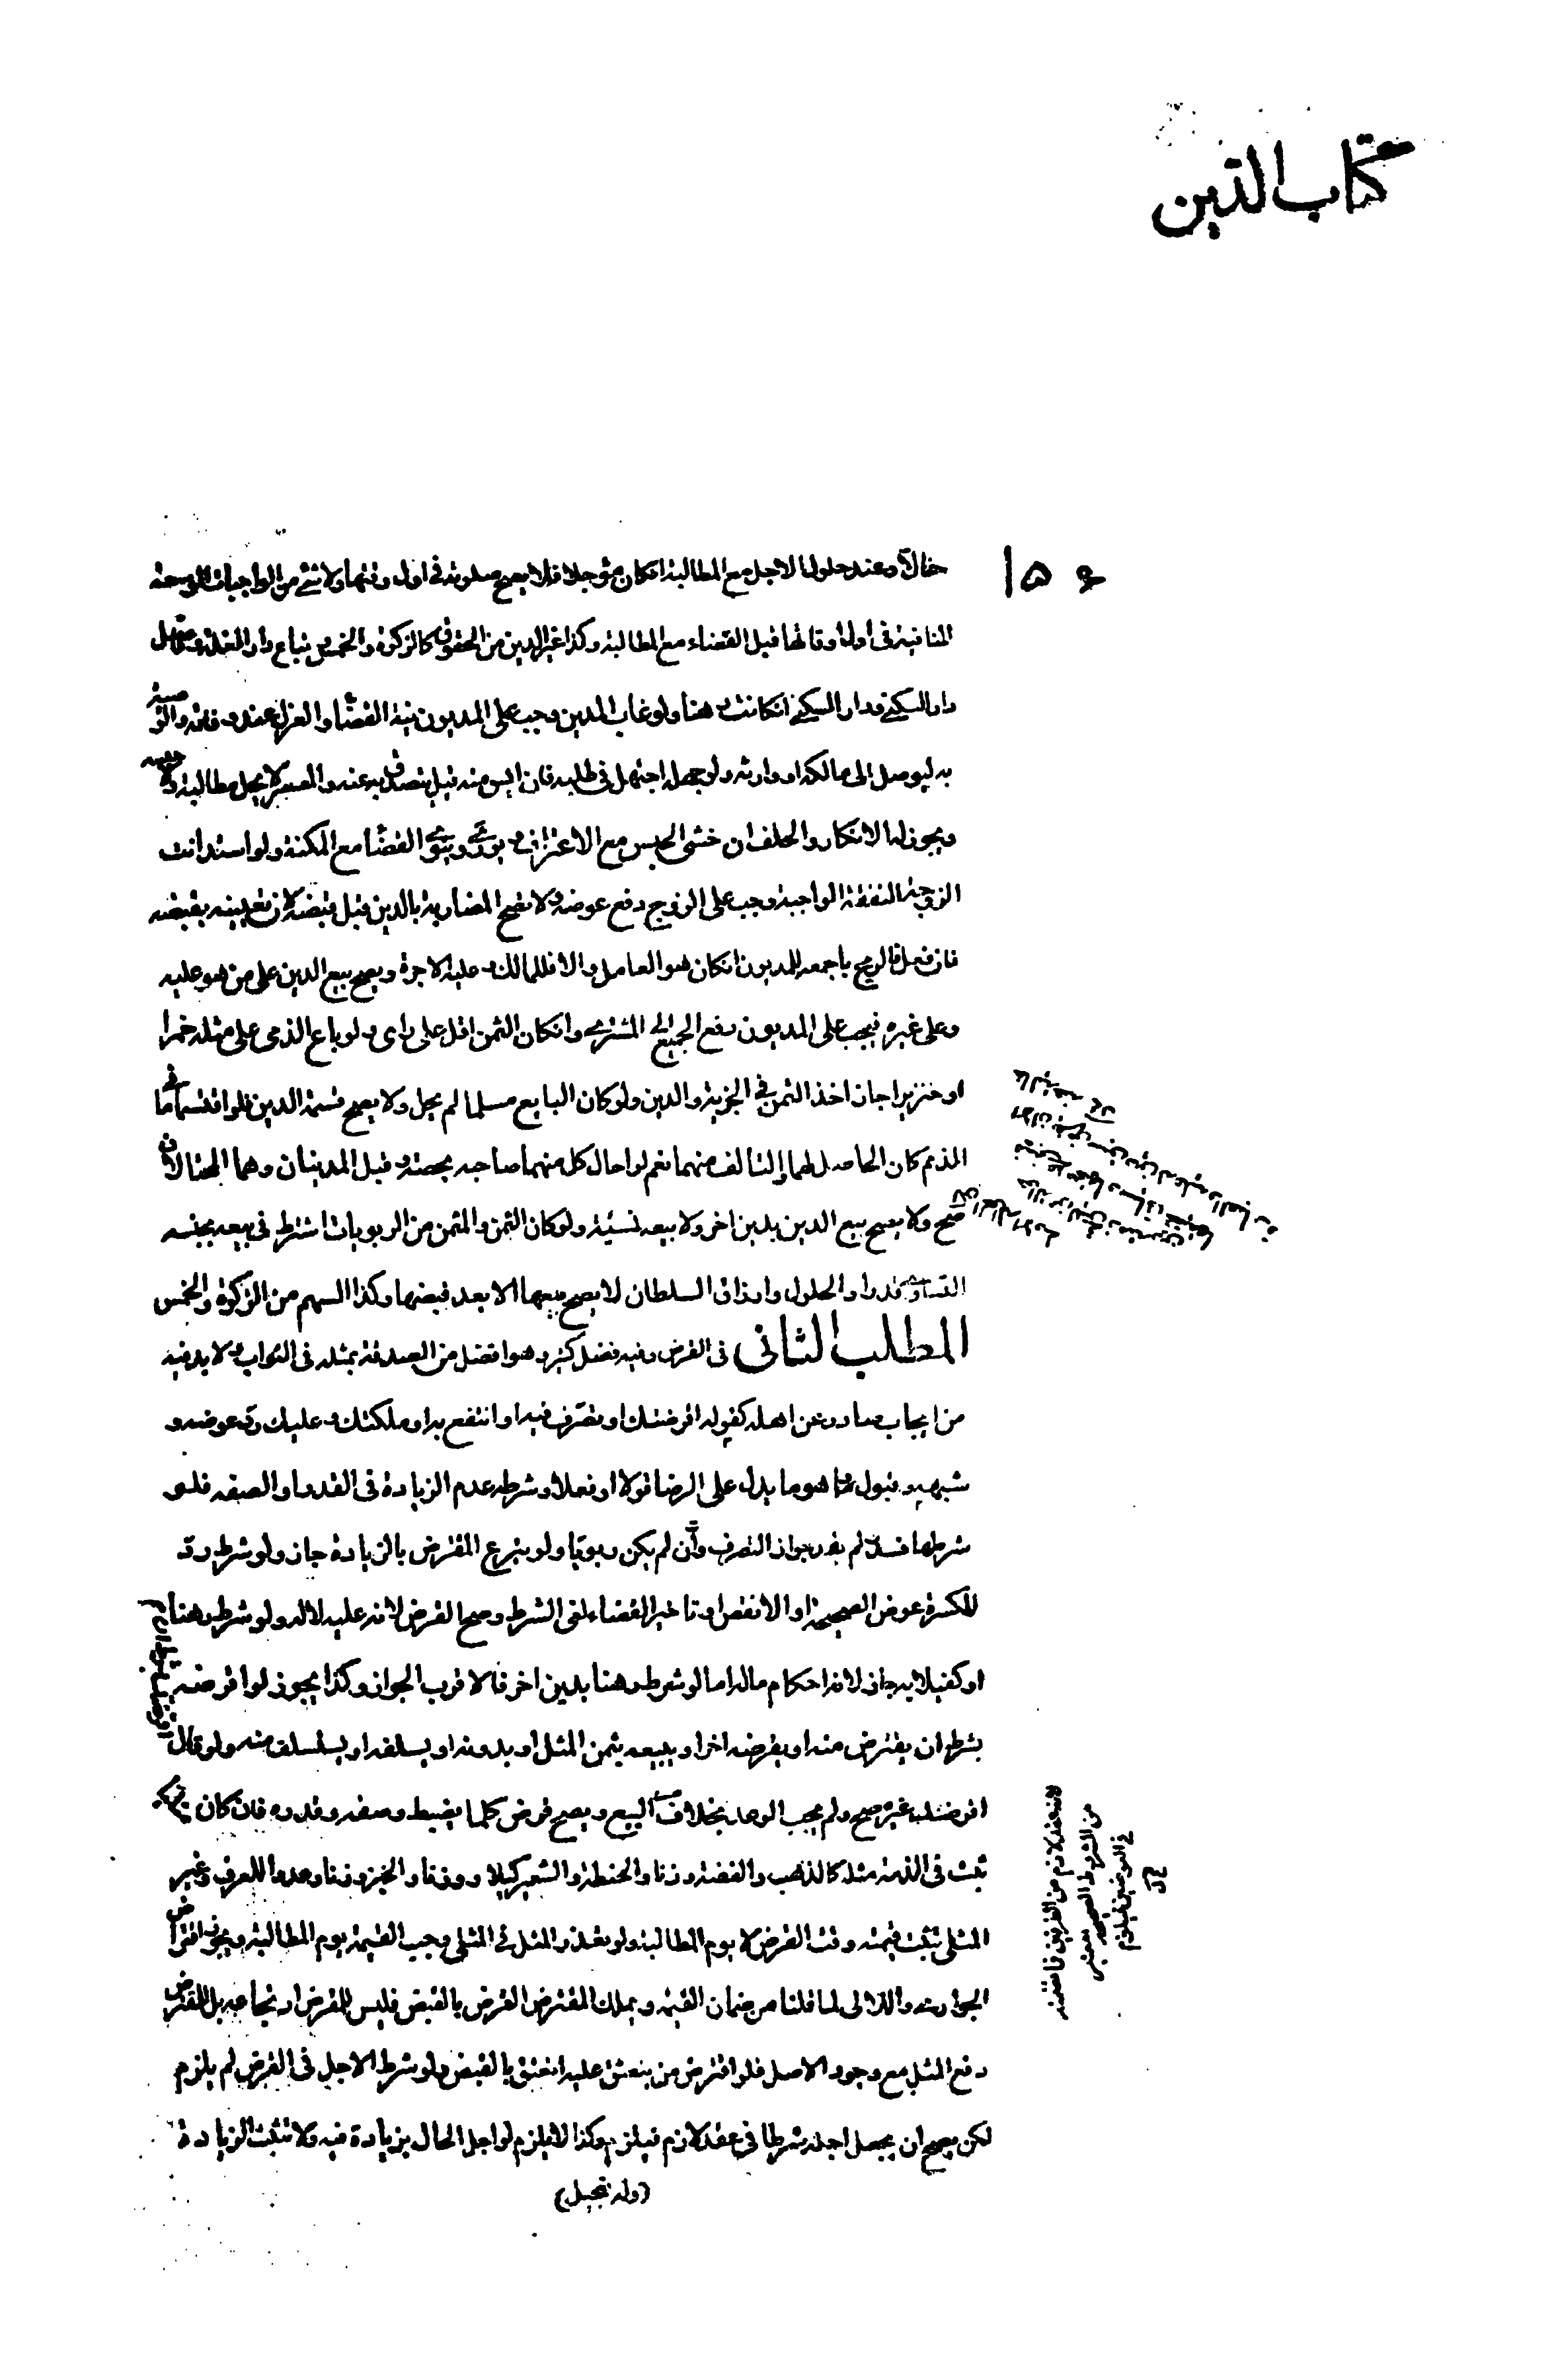 كتاب الدين
١٥٦
حالاً وعند حلول الاجل مع المطالبة انكان مؤجلا فلا يصح صلوته في اول وقتها ولا شئ من الواجبات الموسعة
المنافية في اول اوقاتها قبل القضاء مع المطالبة وكذا غير الدين من الحقوق كالزكوة والخمس وتباع دار الغلة وفاضل
دار السكنى ودار السكنى انكانت رهنا ولو غاب المدين وجب على المديون نية القضاء والعزل عند وفاته والوصية
به ليوصل الى مالكه او وارثه ولو جهله اجتهد في طلبه فان ايس منه قيل يتصدق به عنه والمعسر لا يحل مطالبته ولا حبسه
ويجوز له الانكار والحلف ان خشى الحبس مع الاعتراف ويورّى وينوى القضاء مع المكنة ولو استدانت
الزوجة النفقة الواجبة وجب على الزوج دفع عوضه ولا تصح المضاربة بالدين قبل قبضه لان تعيينه بقبضه
فان فعل فالربح باجمعه للمديون انكان هو العامل والا فللمالك وعليه الاجرة ويصح بيع الدين على من هو عليه
وعلى غيره فيجب على المديون دفع الجميع الى المشترى وانكان الثمن اقل على راى ولو باع الذمى على مثله خمرا
او خنزيرا جاز اخذ الثمن في الجزية والدين ولو كان البايع مسلما لم يحل ولا يصح قسمة الدين فلو اقتسما ما في
الذمم كان الحاصل لهما والتالف منهما نعم لو احال كل منهما صاحبه بحصته وقبل المدينان وهما المحتالان
صح ولا يصح بيع الدين بدين اخر ولا بيعه نسيئة ولو كان الثمن والمثمن من الربويات اشترط في بيعه بجنسه
التساوى قدرا والحلول وارزاق السلطان لا يصح بيعها الا بعد قبضها وكذا السهم من الزكوة والخمس
المطلب الثانى في القرض وفيه فضل كثير وهو افضل من الصدقة بمثله في الثواب ولا بد فيه
من ايجاب صادر عن اهله كقوله اقرضتك او تصرّف فيه او انتفع به او ملكتك وعليك رد عوضه و
شبهه وقبول وهو ما يدل على الرضا قولا او فعلا وشرطه عدم الزيادة في القدر او الصفة فلو
شرطها فسد ولم يفد جواز التصرف وان لم يكن ربويا ولو تبرع المقترض بالزيادة جاز ولو شرط رد
المكسرة عوض الصحيحة او الانقص او تاخير القضاء لغى الشرط وصح القرض لانه عليه لا له ولو شرط رهنا به
او كفيلا به جاز لانه احكام ماله اما لو شرط رهنا بدين اخر فالاقرب الجواز وكذا يجوز لو اقرضه
بشرط ان يقترض منه او يقرضه اخر او يبيعه بثمن المثل او بدونه او يسلفه او يستسلف منه ولو قال
اقرضتك بشرط ان اقرضك
غيره صح ولم يجب الوعد بخلاف البيع ويصح قرض كلما يضبط وصفه وقدره فان كان مثليا
ثبت في الذمة مثله كالذهب والفضة وزنا والحنطة والشعير كيلا ووزنا والخبز وزنا وعددا للعرف وغير
المثلى تثبت قيمته وقت القرض لا يوم المطالبة ولو تعذر المثل في المثلى وجب القيمة يوم المطالبة ويجوز اقتراض
الجوارى واللالى لما قلنا من ضمان القيمة ويملك المقترض القرض بالقبض فليس للمقرض ارتجاعه بل للمقترض
دفع المثل مع وجود الاصل فلو اقترض من ينعتق عليه انعتق بالقبض ولو شرط الاجل في القرض لم يلزم
لكن يصح ان يجعل اجله شرطا في عقد لازم فيلزم وكذا لا يلزم لو اجل الحال بزيادة فيه ولا تثبت الزيادة
(وله تعجيل)
لانه عقد لازم من الطرفين فاشتمنه
من الشروط الصحيحة
فيلزم